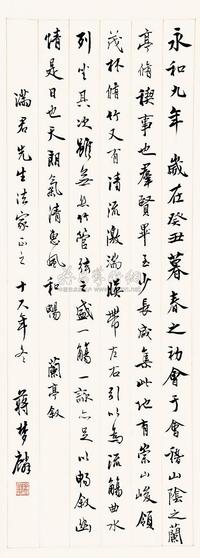 永和九年歲在癸丑暮春之初會于會稽山陰之蘭
亭脩禊事也羣賢畢至少長咸集此地有崇山峻領
茂林脩竹又有清流激湍映帶左右引以為流觴曲水
列坐其次雖無絲竹管弦之盛一觴一詠亦足以暢叙幽
情是日也天朗氣清惠風和暢 蘭亭叙
滿君先生法家正之 十六年冬 蔣夢麟